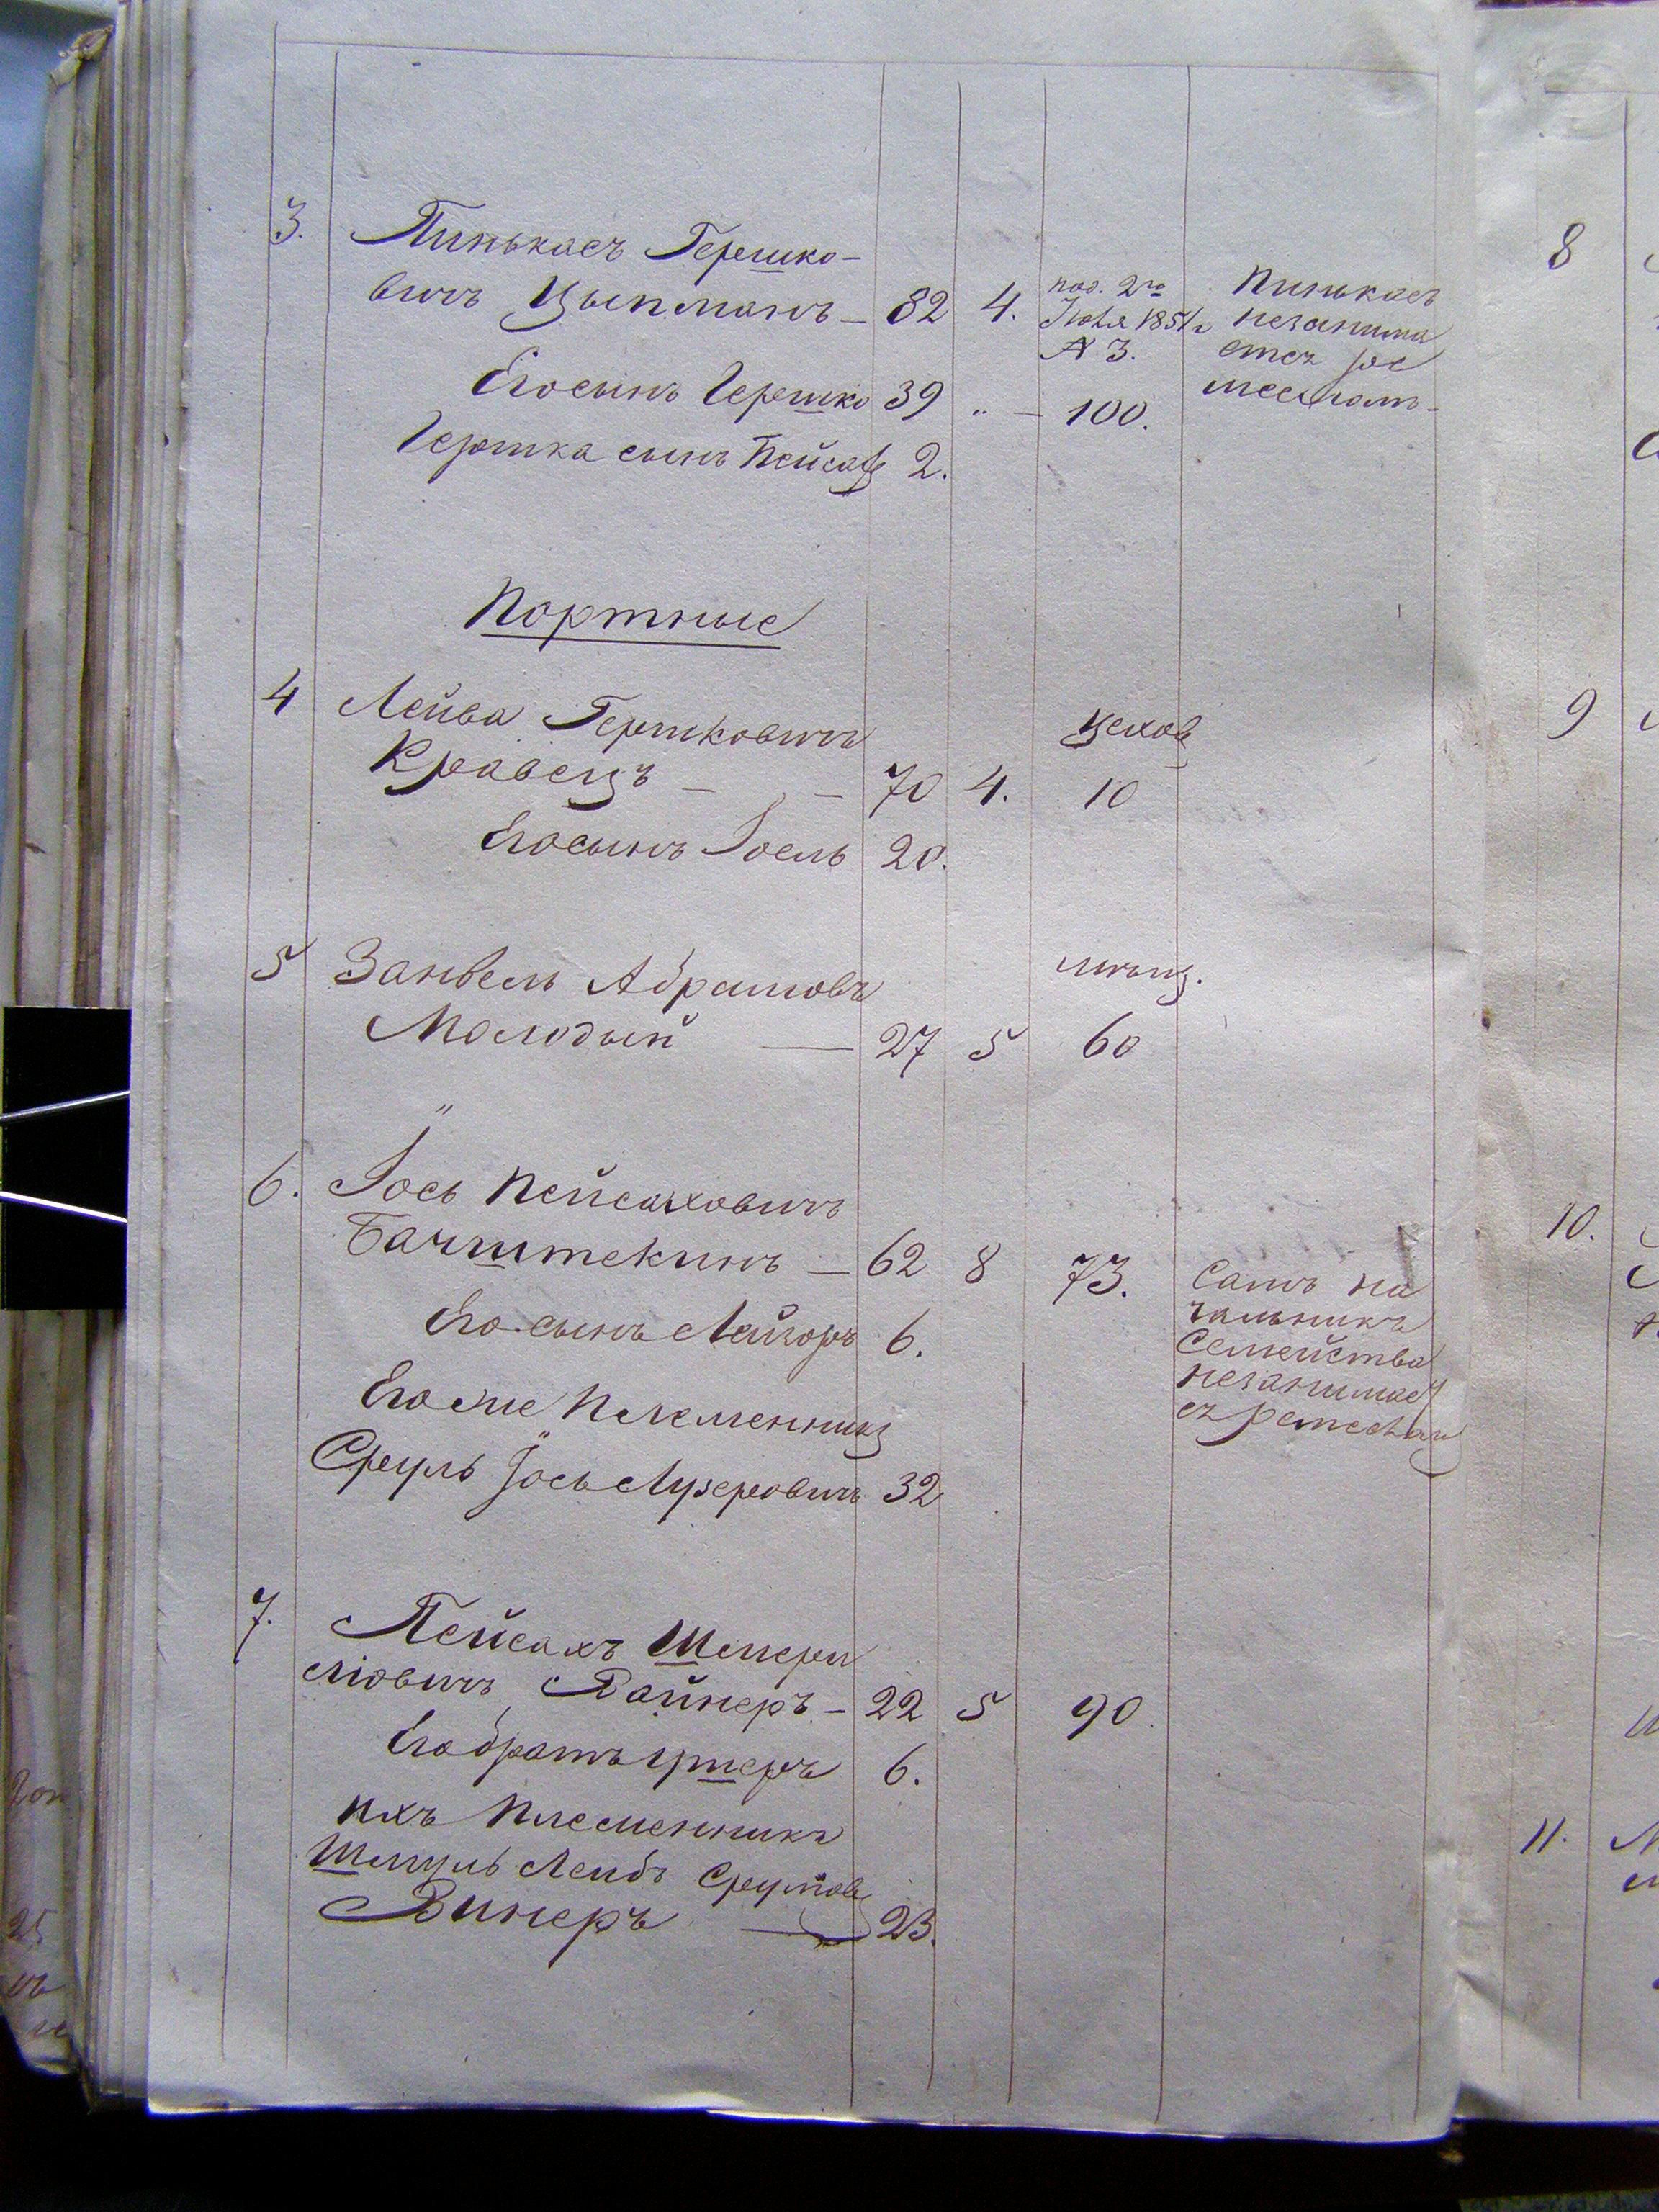 3. Пинькасъ Гершко-
вичъ Цыпманъ — 82 4.
под. 2го
Июля 1851 г
№ 3.
Пинькасъ
незанима
ется ре
месломъ
Его сынъ Гершко 39 „ — 100.
Гершка сынъ Пейсах 2.
Портные
4 Лейба Гершковичъ
цехов
Кравецъ — — 70 4. 10
Его сынъ Іосль 20.
5 Занвель Абрамовъ
мѣщ.
Молодый — 27 5 60
6. Іось Пейсаховичъ
Бачштекинъ — 62 8 73.
Самъ на
чальникъ
Семейства
незанимает
ся ремеслом
Его сынъ Лейзоръ 6.
Его же племенник
Сруль Іось Лузеровичъ 32
7. Пейсахъ Шмери
лiовичъ Вайнеръ — 22 5 90.
Его братъ Ушеръ 6.
ихъ племенникъ
Шмуль Лейбъ Срулов
Винеръ — 23.
8
9
10.
11.